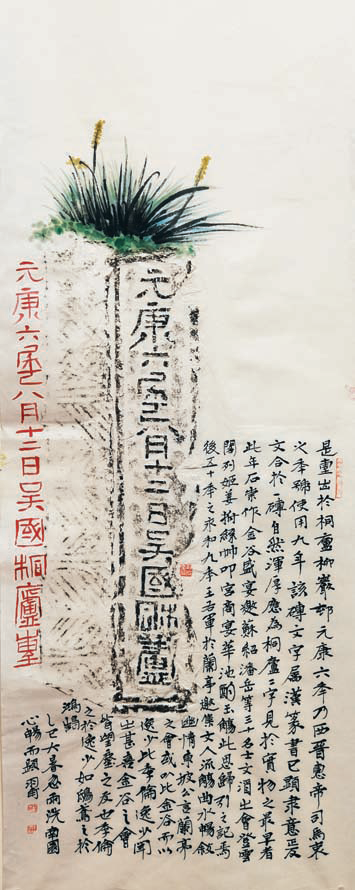 元康六年八月十二日吴國桐廬𡌥
元康六年八月十二日吴國
是𡌥出於桐廬柳巖邨元康六季乃西晉惠帝司馬衷
之季號使用九年該磚文字屬漢篆書已顯隶意
文合於一磚自然渾厚應為桐廬字見於實物之最早者
此年石崇作金谷盛宴邀蘇紹潘岳等三十名士文酒出會登雲
閣列姬姜宮商宴華池酌玉觴此思歸引之記焉
後五十季之永和九季王右軍於蘭亭邀集文人流觴曲水暢敘
幽情東坡公言蘭亭
之會或以比金谷而以
逸少比季倫逸少聞
之甚喜金谷之會
皆望塵之友也季倫
之於逸少如鴟鳶之於
鴻鵠
乙巳大暑急雨洗南園
心暢而題